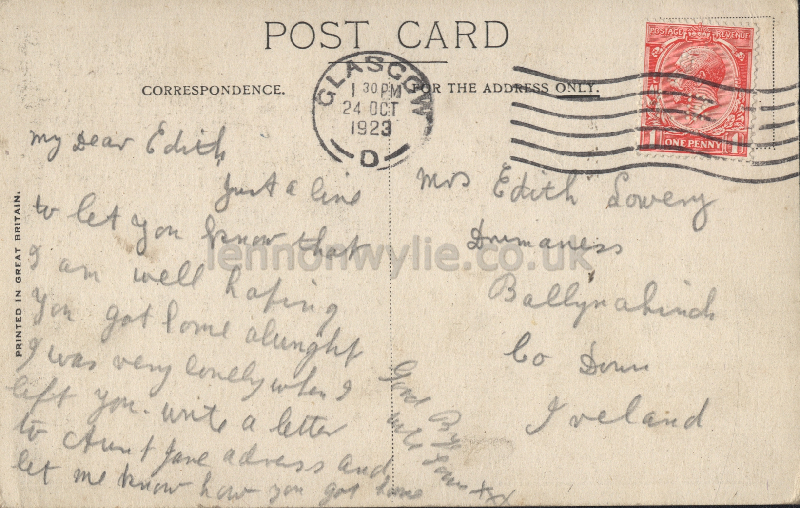 POST CARD
CORRESPONDENCE.
FOR THE ADDRESS ONLY.
GLASGOW
1 30 PM
24 OCT
1923
D
POSTAGE REVENUE
ONE PENNY
PRINTED IN GREAT BRITAIN.
My Dear Edith
Just a line
to let you know that
I am well hoping
you got home alright
I was very lonely when I
left you. write a letter
to Aunt Jane adress and
let me know how you got home
Good By
with love xxx
Mrs Edith Lowery
Drumaness
Ballynahinch
Co Down
Ireland
lennonwylie.co.uk